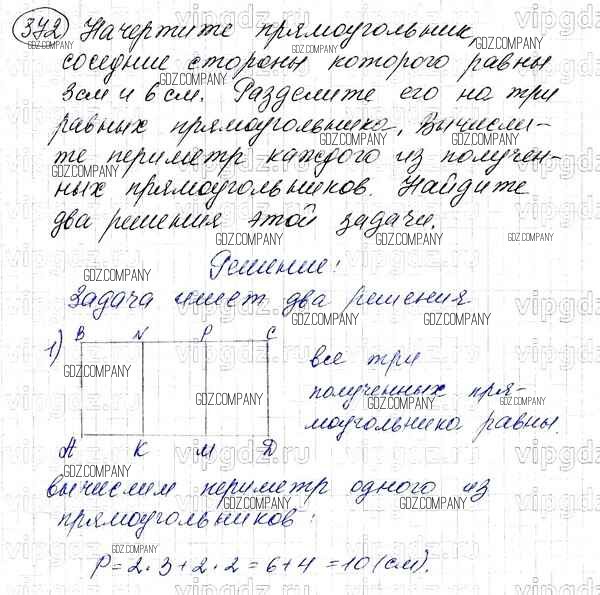 372 Начертите прямоугольник,
соседние стороны которого равны
3см и 6см. Разделите его на три
равных прямоугольника. Вычисли-
те периметр каждого из получен-
ных прямоугольников. Найдите
два решения этой задачи.
Решение:
Задача имеет два решения
1)
B N P C
A K M D
все три
полученных пря-
моугольника равны.
вычислим периметр одного из
прямоугольников:
P = 2·3 + 2·2 = 6+4 = 10 (см).
GDZ.COMPANY
vipgdz.ru